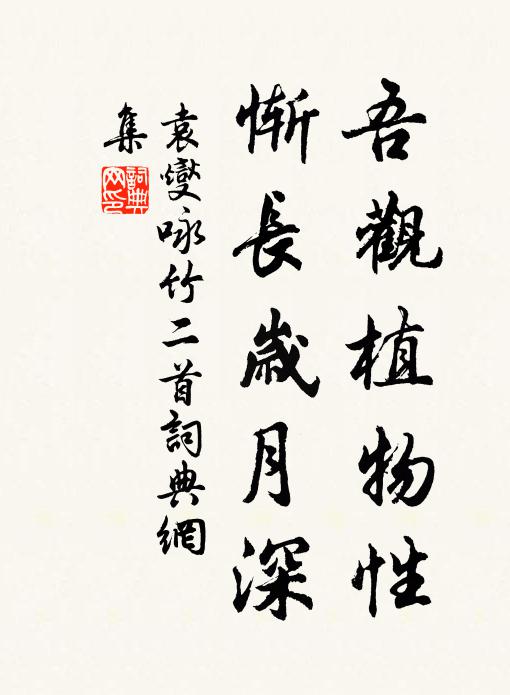 吾觀植物性
慚長歲月深
袁燮咏竹二首詞典網
集
詞典
网印